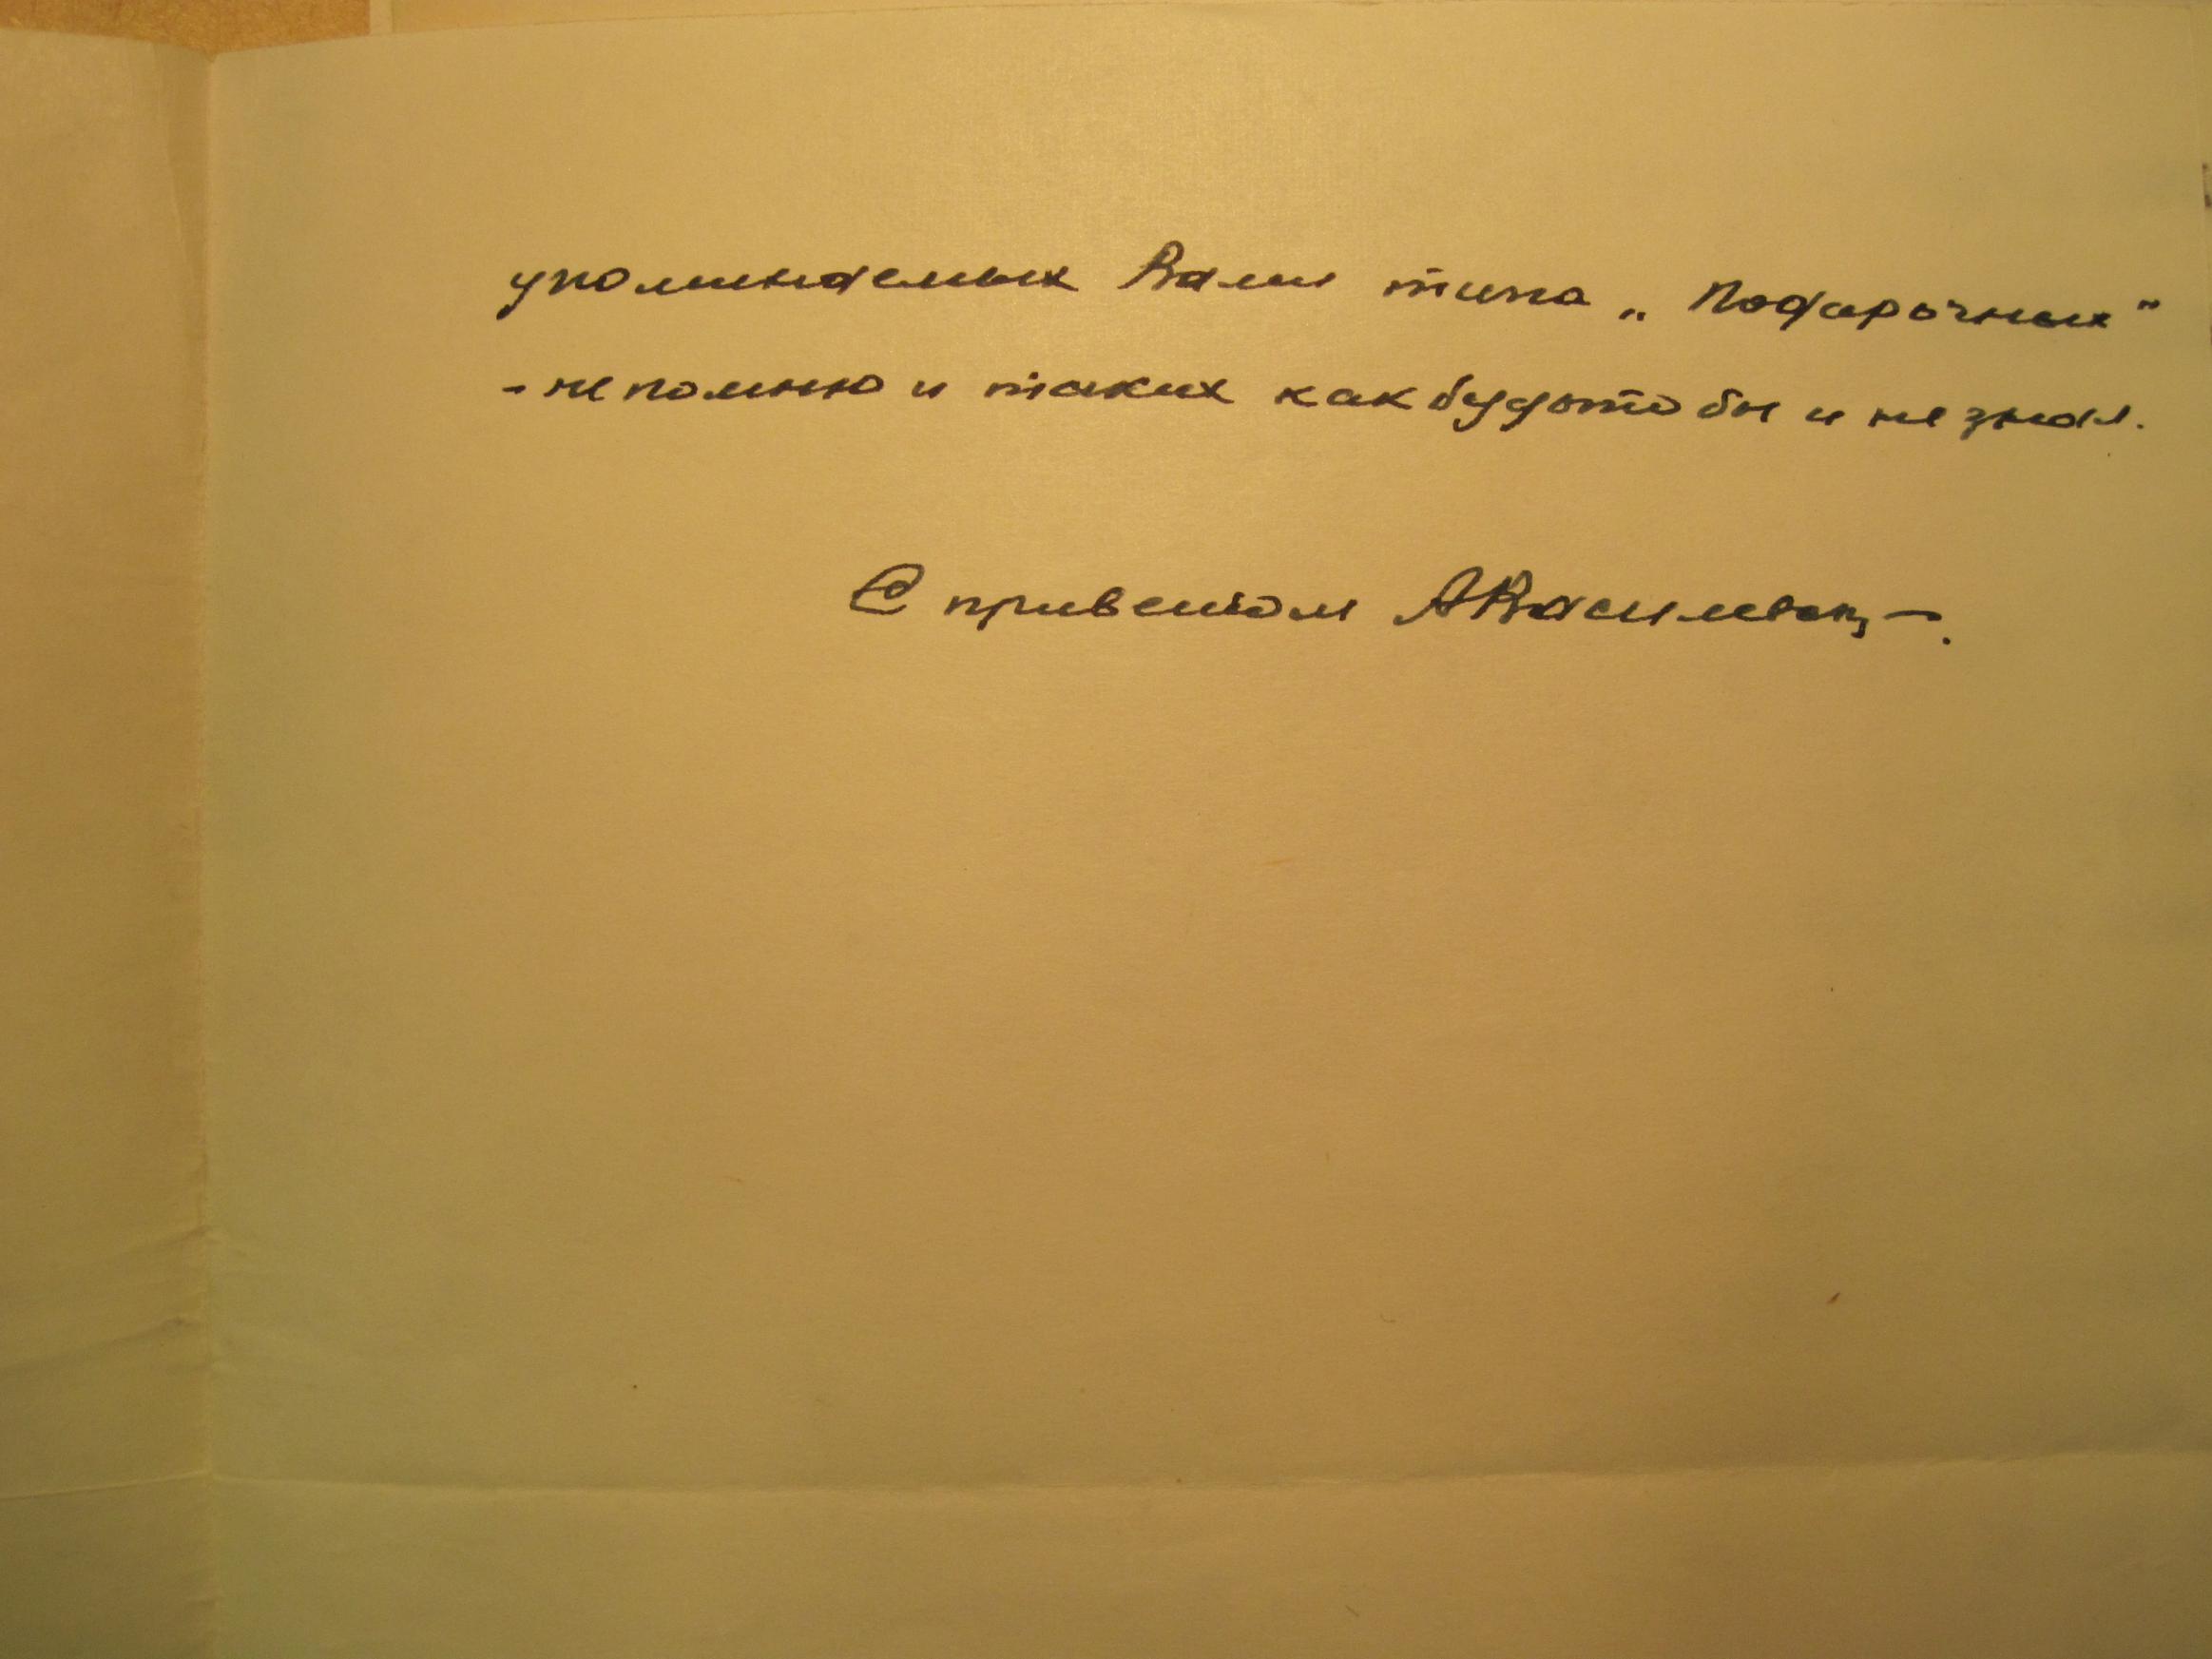 упоминаемых Вами типа „Подарочных"
- не помню и таких как будто бы и не знал.
С приветом